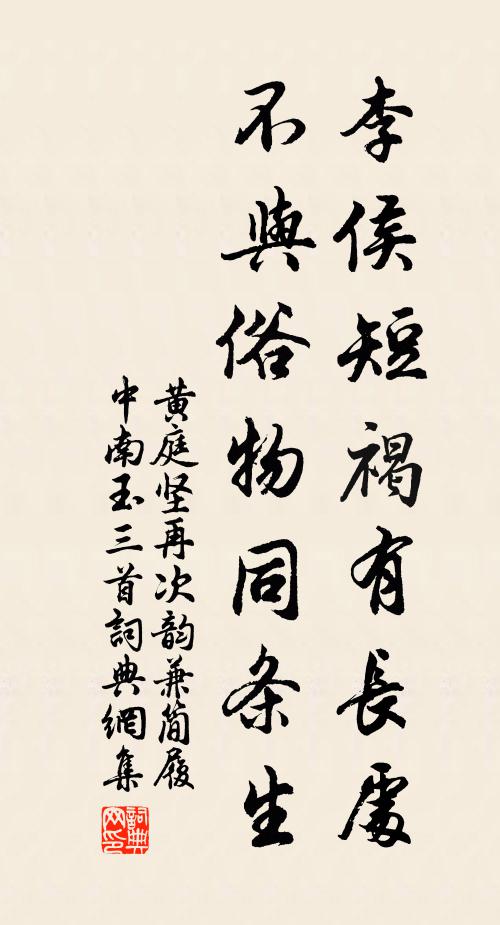 李侯短褐有長處
不與俗物同条生
黄庭坚再次韵兼简履
中南玉三首詞典網集
詞典网印